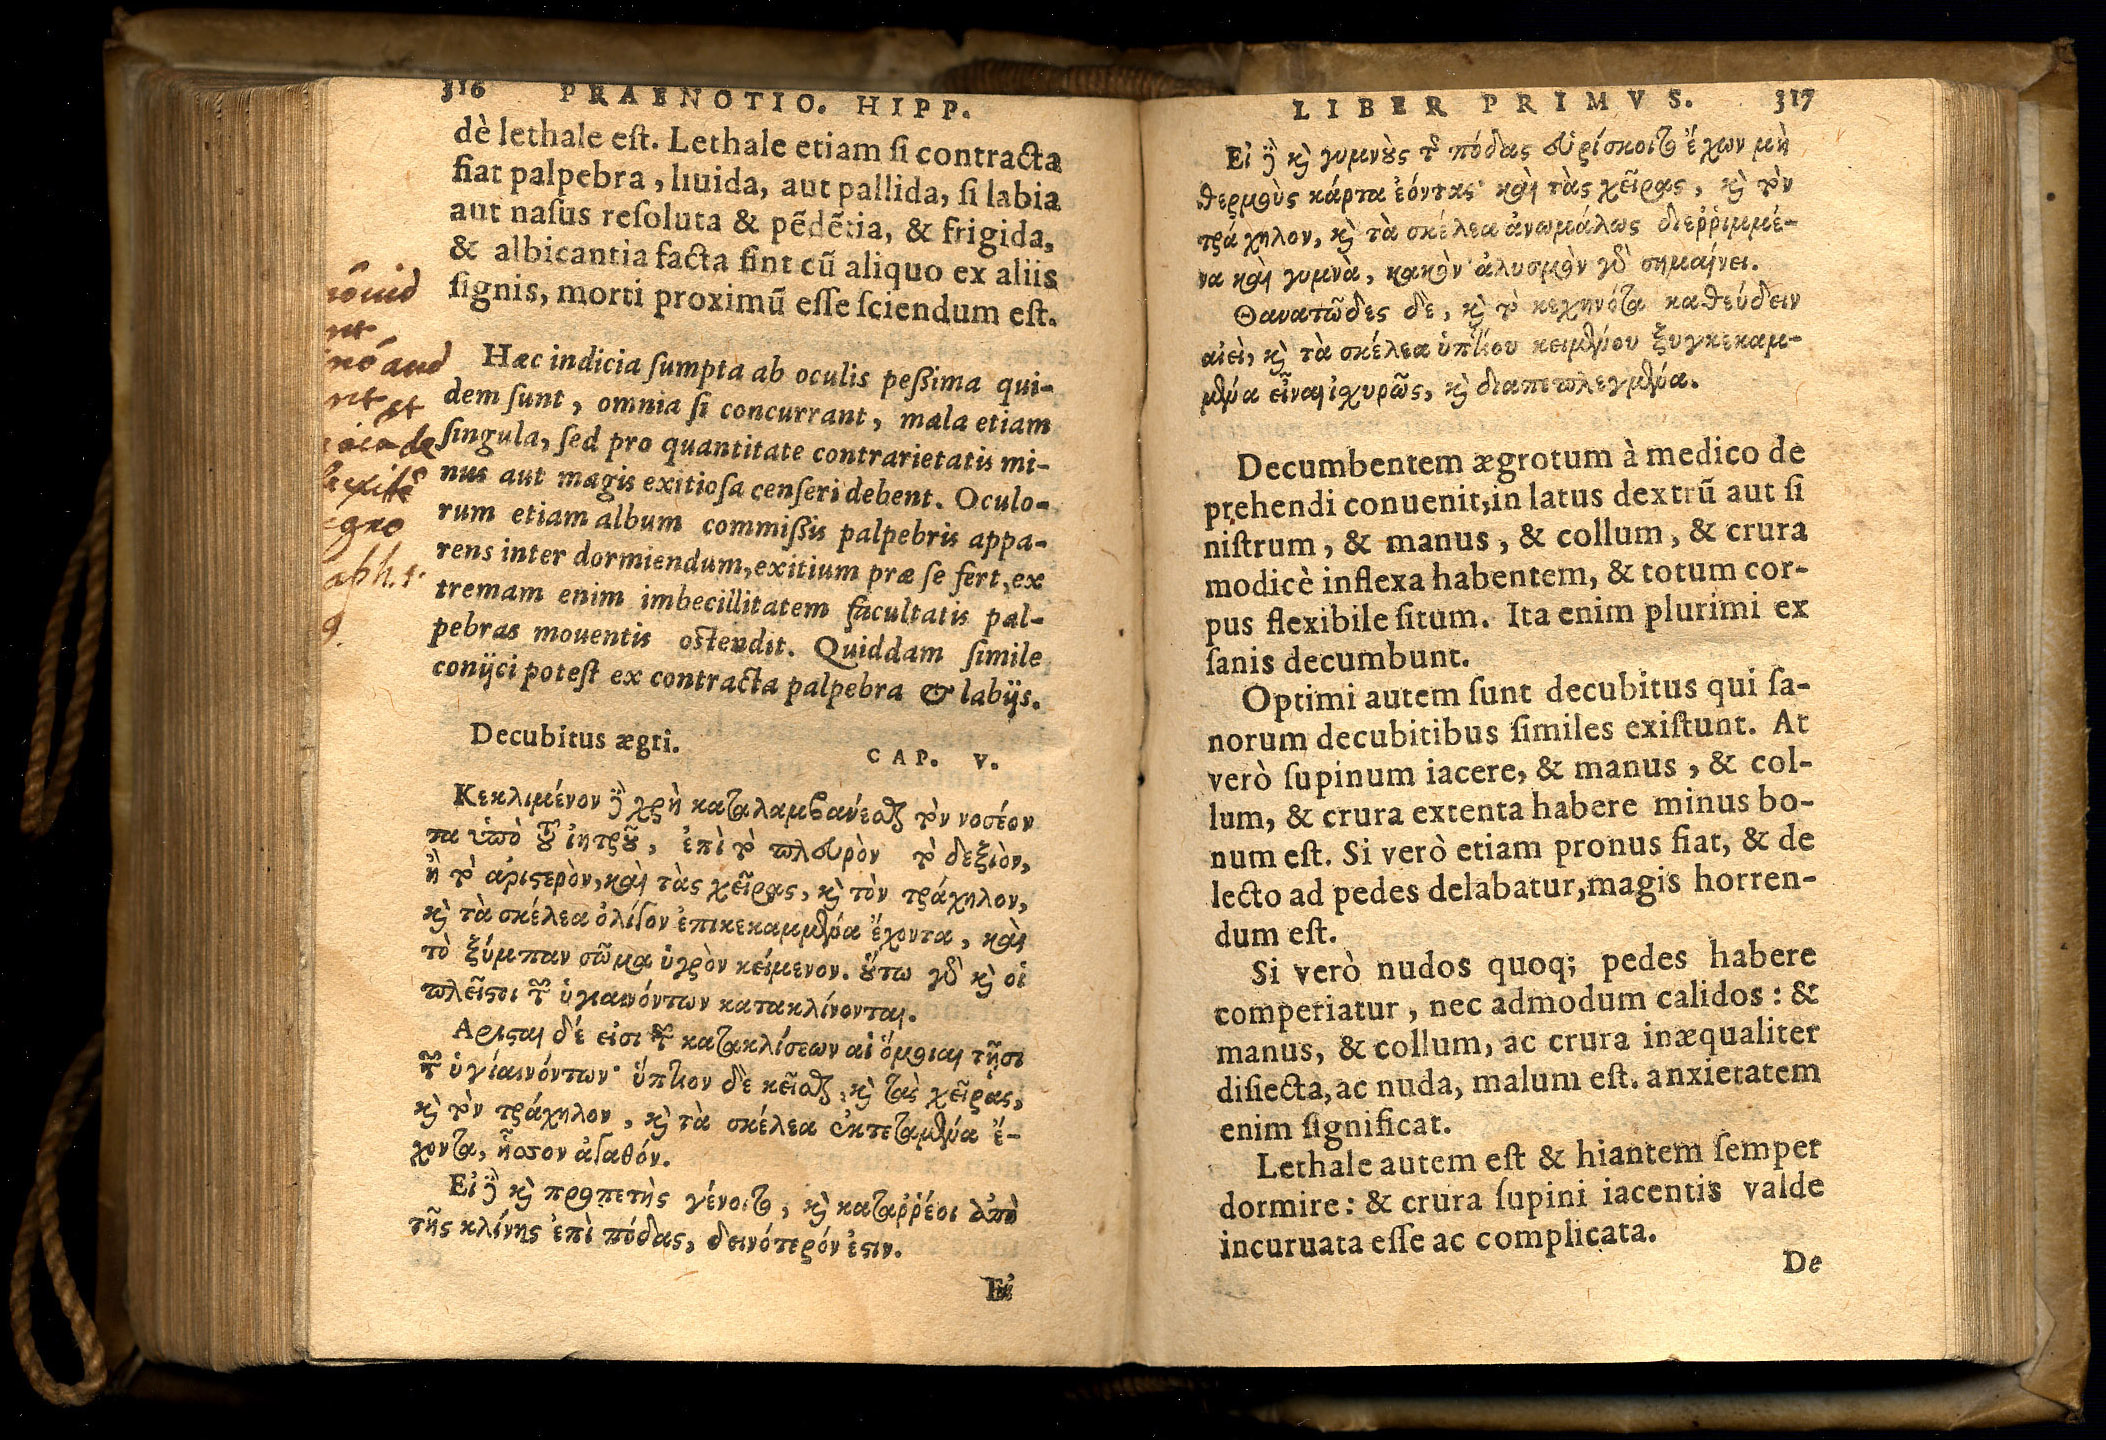 316 PRAENOTIO. HIPP.
dè lethale eſt. Lethale etiam ſi contracta
fiat palpebra, liuida, aut pallida, ſi labia
aut naſus reſoluta & pẽdẽtia, & frigida,
& albicantia facta ſint cũ aliquo ex aliis
ſignis, morti proximũ eſſe ſciendum eſt.
Hæc indicia ſumpta ab oculis peßima qui-
dem ſunt, omnia ſi concurrant, mala etiam
ſingula, ſed pro quantitate contrarietatis mi-
nus aut magis exitioſa cenſeri debent. Oculo-
rum etiam album commißis palpebris appa-
rens inter dormiendum, exitium præ ſe fert, ex
tremam enim imbecillitatem facultatis pal-
pebras mouentis oſtendit. Quiddam ſimile
conijci poteſt ex contracta palpebra & labijs.
aph. 1.
Decubitus ægri. CAP. V.
Κεκλιμένον ϳ̃ χρὴ καταλαμβανέσθαι τὸν νοσέον
τα ὑπὸ τοῦ ἰητροῦ, ἐπὶ τὸ πλευρὸν τὸ δεξιὸν,
ἢ τὸ ἀριστερὸν, καὶ τὰς χεῖρας, καὶ τὸν τράχηλον,
καὶ τὰ σκέλεα ὀλίγον ἐπικεκαμμένα ἔχοντα, καὶ
τὸ ξύμπαν σῶμα ὑγρὸν κείμενον. οὕτω γὰρ καὶ οἱ
πλεῖστοι τῶν ὑγιαινόντων κατακλίνονται.
Αρισται δέ εἰσι τῶν κατακλίσεων αἱ ὅμοιαι τῇσι
τῶν ὑγίαινόντων· ὕπτιον δὲ κεῖσθαι, καὶ τὰς χεῖρας,
καὶ τὸν τράχηλον, καὶ τὰ σκέλεα ἐκτεταμένα ἔ-
χοντα, ἧσσον ἀγαθόν.
Εἰ δὲ καὶ προπετὴς γένοιτο, καὶ καταῤῥέοι ἀπὸ
τῆς κλίνης ἐπὶ πόδας, δεινότερόν ἐστιν.
Εἰ
LIBER PRIMVS. 317
Εἰ δὲ καὶ γυμνοὺς τοὺς πόδας εὑρίσκοιτο ἔχων μὴ
θερμοὺς κάρτα ἐόντας· καὶ τὰς χεῖρας, καὶ τὸν
τράχηλον, καὶ τὰ σκέλεα ἀνωμάλως διεῤῥιμμέ-
να καὶ γυμνὰ, κακὸν· ἀλυσμὸν γὰρ σημαίνει.
Θανατῶδες δὲ, καὶ τὸ κεχηνότα καθεύδειν
αἰεὶ, καὶ τὰ σκέλεα ὑπτίου κειμένου ξυγκεκαμ-
μένα εἶναι ἰσχυρῶς, καὶ διαπεπλεγμένα.
Decumbentem ægrotum à medico de
prehendi conuenit, in latus dextrũ aut ſi
niſtrum, & manus, & collum, & crura
modicè inflexa habentem, & totum cor-
pus flexibile ſitum. Ita enim plurimi ex
ſanis decumbunt.
Optimi autem ſunt decubitus qui ſa-
norum decubitibus ſimiles exiſtunt. At
verò ſupinum iacere, & manus, & col-
lum, & crura extenta habere minus bo-
num eſt. Si verò etiam pronus fiat, & de
lecto ad pedes delabatur, magis horren-
dum eſt.
Si verò nudos quoq; pedes habere
comperiatur, nec admodum calidos: &
manus, & collum, ac crura inæqualiter
diſiecta, ac nuda, malum eſt. anxietatem
enim ſignificat.
Lethale autem eſt & hiantem ſemper
dormire: & crura ſupini iacentis valde
incuruata eſſe ac complicata.
De